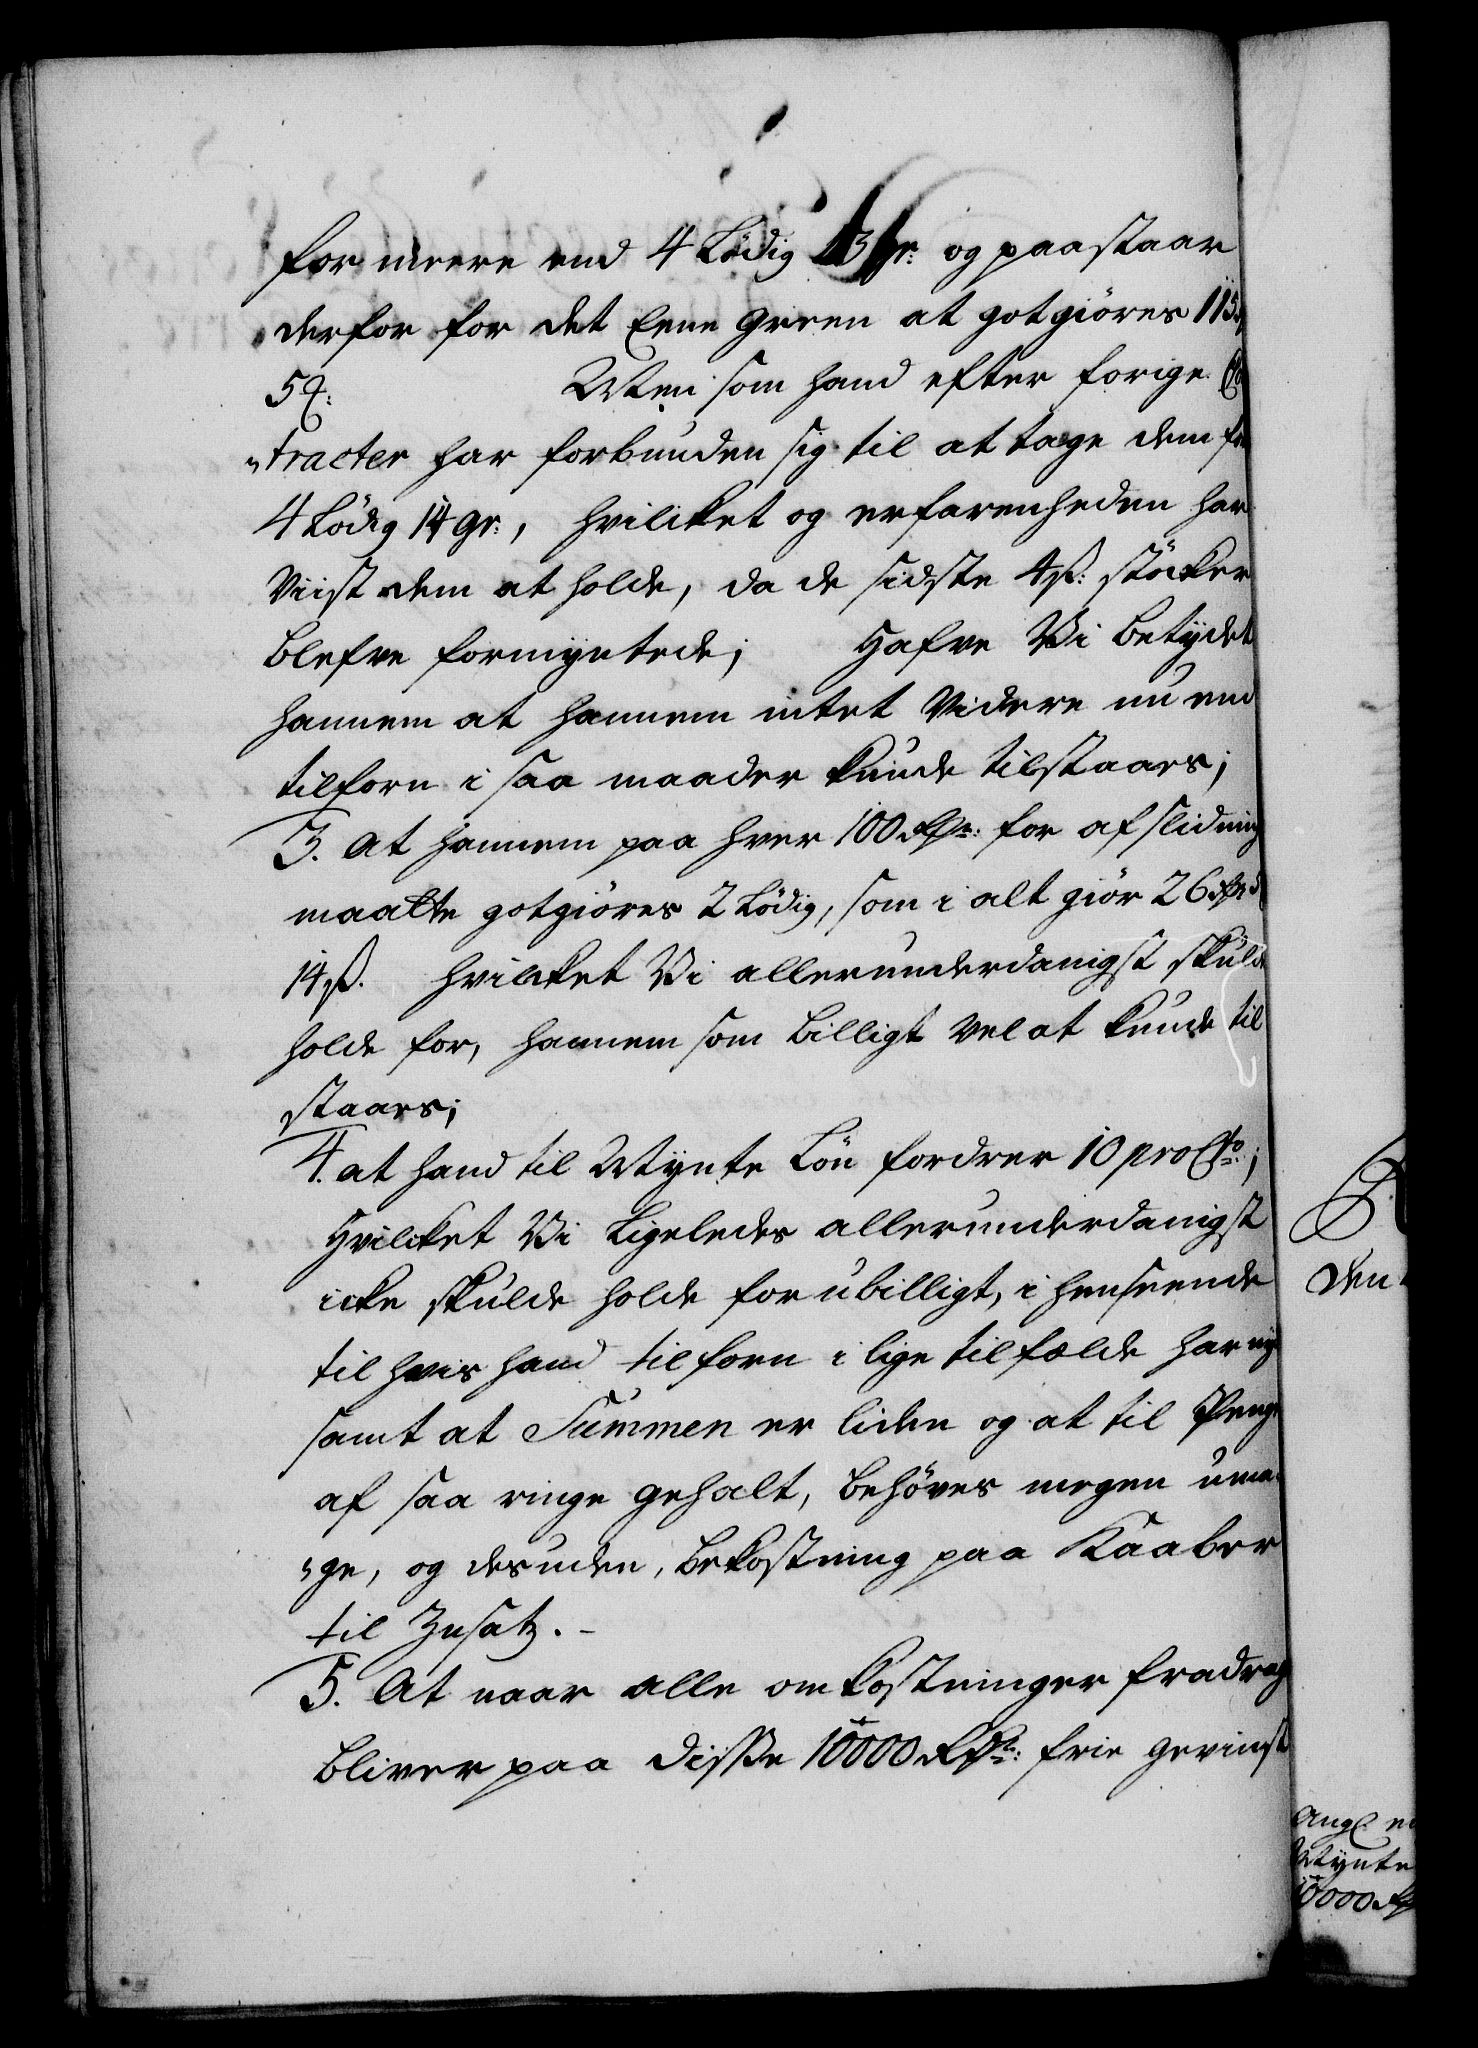 for meere end 4 Lödig 13 gr: og paastaar
derfor for det Eene green at got giöres 113
5 ₰: Men som hand efter forige Co
"tracter har forbunden sig til at tage dem fo
4 Lödig 14 gr:, hvilcket og erfarenheden har
Viist dem at holde, da de sidste 4 ß: stöcker
blefve formyntede; Hafve Vi betydet
hannem at hannem intet Videre nu end
tilforn i saa maader kunde tilstaaes;
3. At hannem paa hver 100 Rdr: for afslidning
maatte gotgiöres 2 Lödig, som i alt giör 26 Rdr
14 ß. hvilcket Vi allerunderdanigst skulde
holde for, hannem som billigt vel at kunde til
staaes;
4. at hand til Mynte Lön fordrer 10 pro Cto:;
Hvilcket Vi Ligeledes allerunderdanigst
icke skulde holde for ubilligt, i henseende
til hvis hand tilforn i lige tilfælde har
samt at Summen er liden og at til Penge
af saa ringe gehalt, behöves megen uma
"ge, og desuden, bekostning paa Kaaber
til Zusatz. -
5. At naar alle omkostninger fradrag
bliver paa disse 10000 Rdr: frie gevinst
den
Ang:
Mynte
10000 Rd